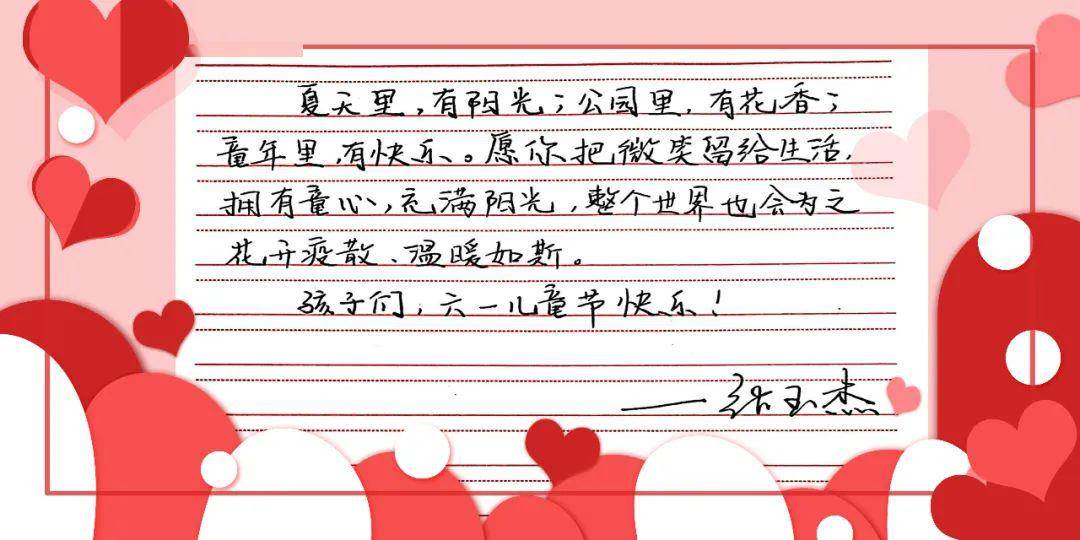 夏天里,有阳光;公园里,有花香;
童年里,有快乐。愿你把微笑留给生活,
拥有童心,充满阳光,整个世界也会为之
花开疫散、温暖如斯。
孩子们,六一儿童节快乐!
——玉杰